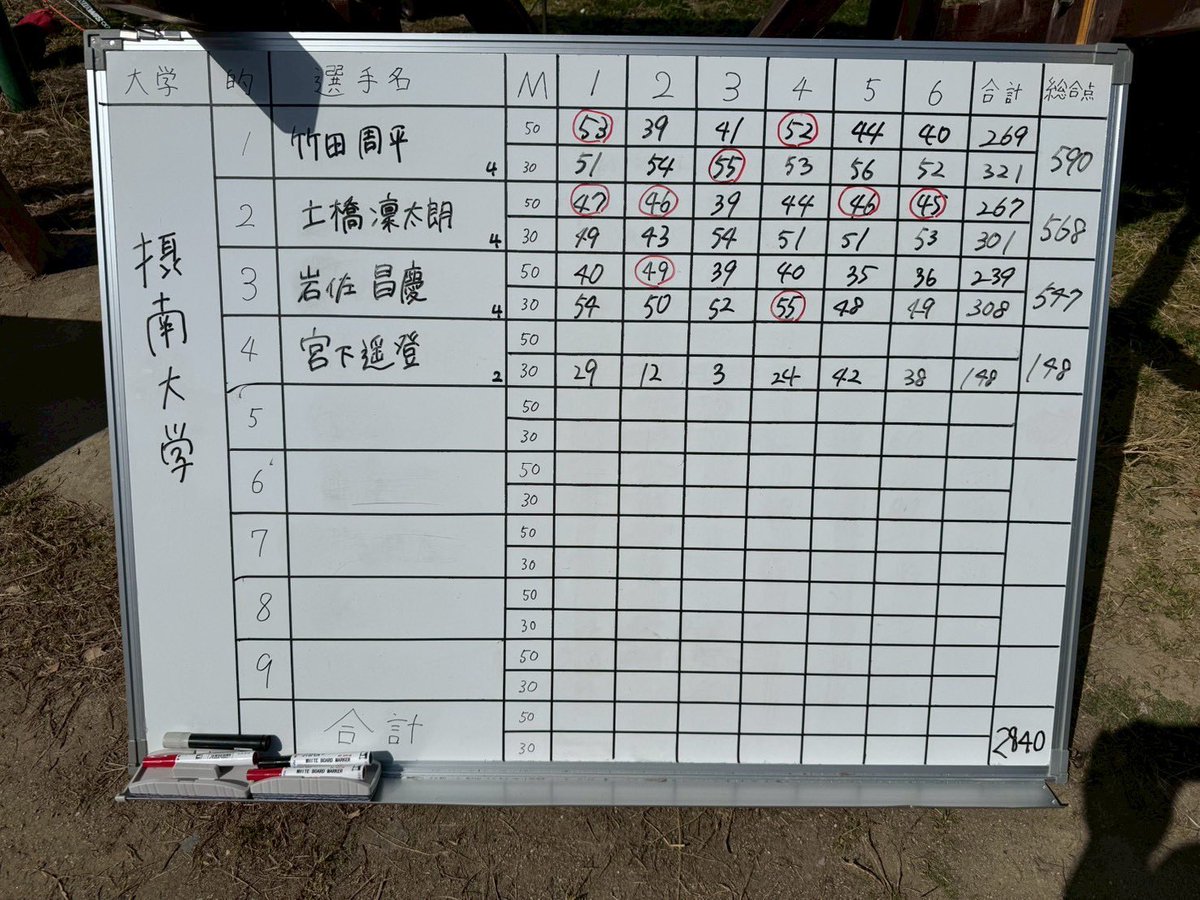 大学 的 選手名 M 1 2 3 4 5 6 合計 総合点
摂南大学
1 竹田 周平 4 50 53 39 41 52 44 40 269 590
30 51 54 55 53 56 52 321
2 土橋 凛太朗 4 50 47 46 39 44 46 45 267 568
30 49 43 54 51 51 53 301
3 岩佐 昌慶 4 50 40 49 39 40 35 36 239 547
30 54 50 52 55 48 49 308
4 宮下遥登 2 50 148
30 29 12 3 24 42 38 148
5 50
30
6 50
30
7 50
30
8 50
30
9 50
30
合計 50 2840
30
WHITE BOARD MARKER
WHITE BOARD MARKER